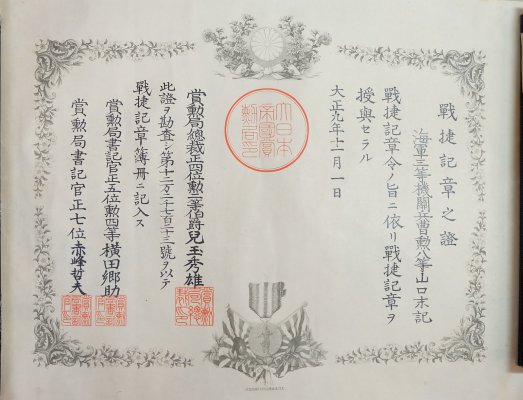 戰捷記章之證
海軍三等機關兵曹勲八等山口末記
戰捷記章令ノ旨ニ依リ戰捷記章ヲ
授與セラル
大正九年十一月一日
大日本
帝國賞
勲局印
賞勲局總裁正四位勲二等伯爵兒玉秀雄
此證ヲ勘査シ第十二万二千七百三十三號ヲ以テ
戰捷記章簿冊ニ記入ス
賞勲局書記官正五位勲四等横田郷助
賞勲局書記官正七位赤峰哲夫